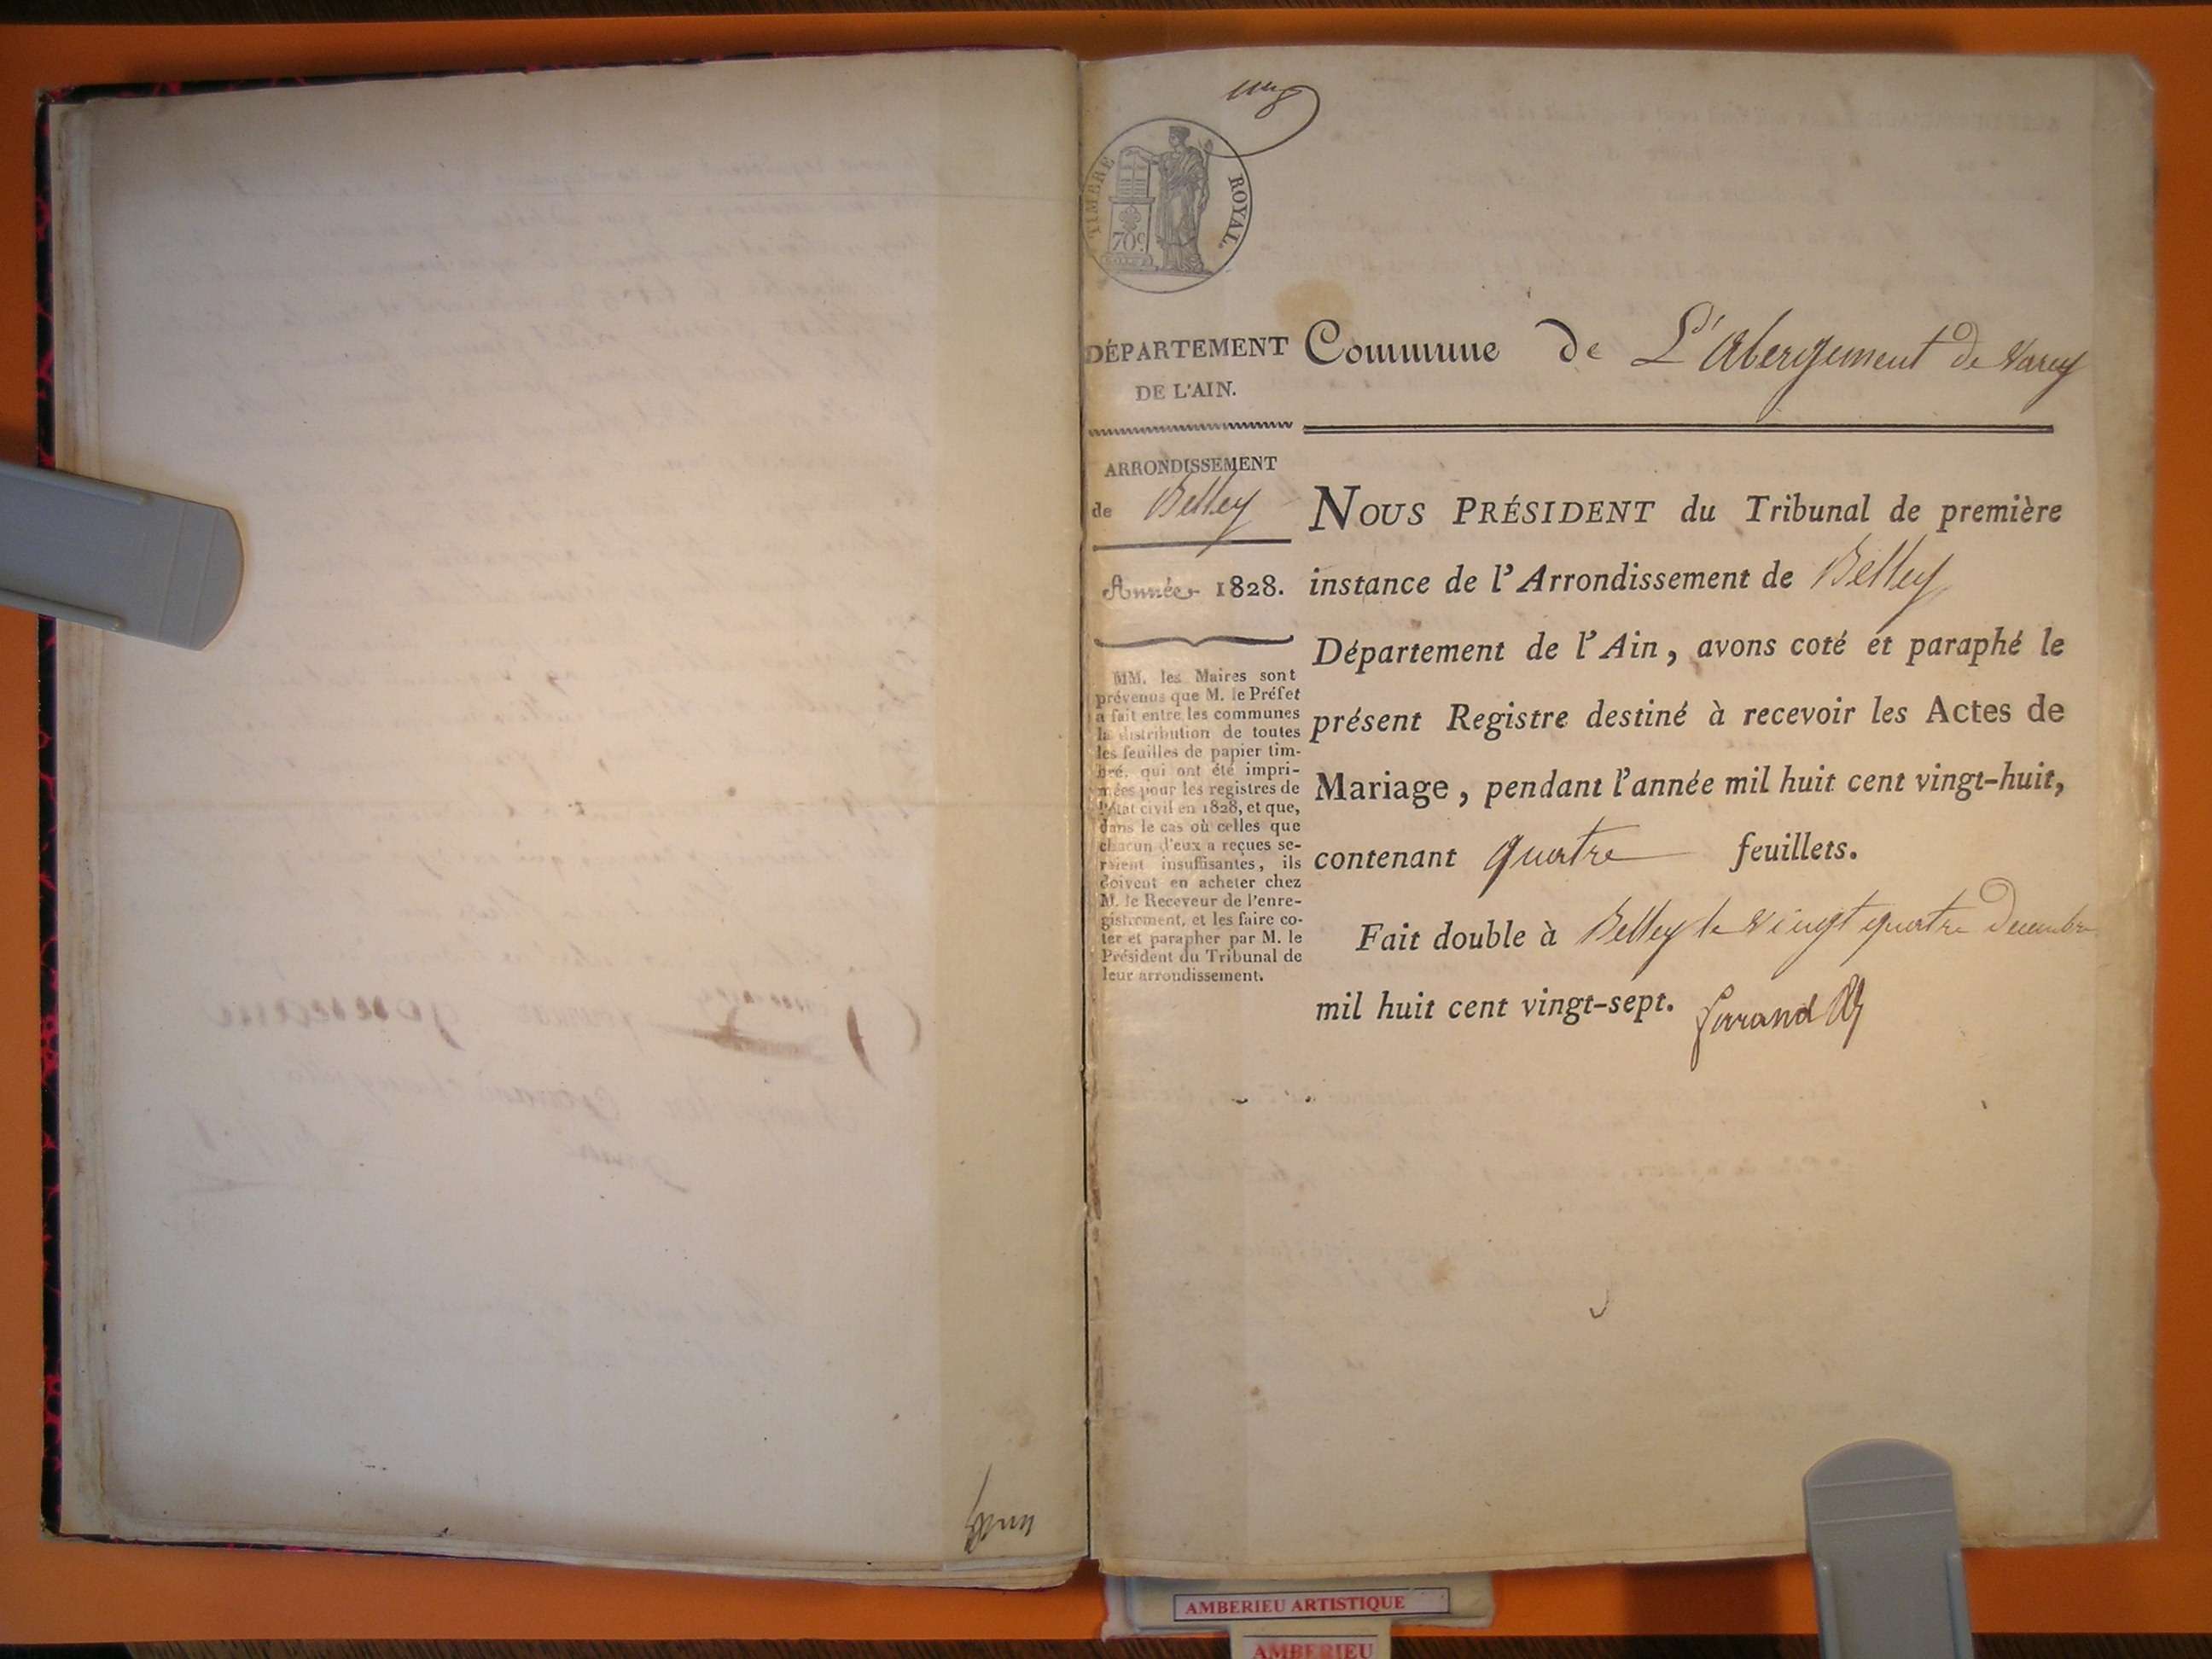 TIMBRE ROYAL.
70c.
DÉPARTEMENT
DE L'AIN.
Commune de L'Abergement de Varey
ARRONDISSEMENT
de Belley
Année 1828.
MM. les Maires sont
prévenus que M. le Préfet
a fait entre les communes
la distribution de toutes
les feuilles de papier tim-
bré, qui ont été impri-
mées pour les registres de
l'état civil en 1828, et que,
dans le cas où celles que
chacun d'eux a reçues se-
raient insuffisantes, ils
doivent en acheter chez
M. le Receveur de l'enre-
gistrement, et les faire co-
ter et parapher par M. le
Président du Tribunal de
leur arroudissement.
NOUS PRÉSIDENT du Tribunal de première
instance de l'Arrondissement de Belley
Département de l'Ain, avons coté et paraphé le
présent Registre destiné à recevoir les Actes de
Mariage, pendant l'année mil huit cent vingt-huit,
contenant quatre feuillets.
Fait double à Belley le vingt quatre Decembre
mil huit cent vingt-sept.
AMBERIEU ARTISTIQUE
AMBERIEU